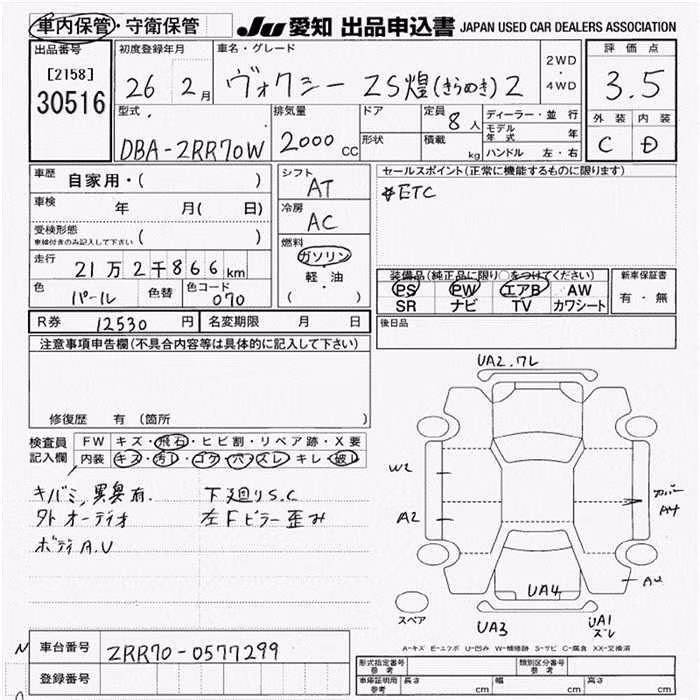 車内保管・守衛保管
JU 愛知 出品申込書 JAPAN USED CAR DEALERS ASSOCIATION
出品番号 初度登録年月 車名・グレード 2WD・4WD 評価点
[2158]
30516
26 2月 ヴォクシー ZS煌(きらめき)Z 3.5
型式 排気量 ドア 定員 8人 ディーラー・並行 外装 内装
DBA-ZRR70W 2000CC 形状 積載 kg モデル年式 年 C D
ハンドル 左・右
車歴 自家用・( ) シフト AT セールスポイント(正常に機能するものに限ります)
☆ETC
車検 年 月( 日) 冷房 AC
受検形態 ( )
車検付きのみ記入して下さい
燃料 ガソリン・軽・油・( )
走行 21万2千866km 装備品(純正品に限り○をつけてください) 新車保証書
色 パール 色替 色コード 070 PS PW エアB AW 有・無
SR ナビ TV カワシート
R券 12530円 名変期限 月 日 後日品
注意事項申告欄(不具合内容等は具体的に記入して下さい)
修復歴 有(箇所
検査員記入欄 FW キズ・飛石・ヒビ割・リペア跡・X要
内装 キズ・汚レ・コゲ・穴・スレ・キレ・破レ
キバミ、異臭有. 下廻りS.C
外オーディオ 左Fピラー歪み
ボディA.U
UA2.ワレ
W2
A2
カバー
A4
A4
UA4
スペア
UA3
UA1
ズレ
A-キズ E-エクボ U-凹み W-補修跡 S-サビ C-腐食 XX-交換済
N 車台番号 ZRR70-0577299
登録番号
型式指定番号 参考 類別区分番号 参考
車庫証明用 参考 長さ cm 幅 cm 高さ cm